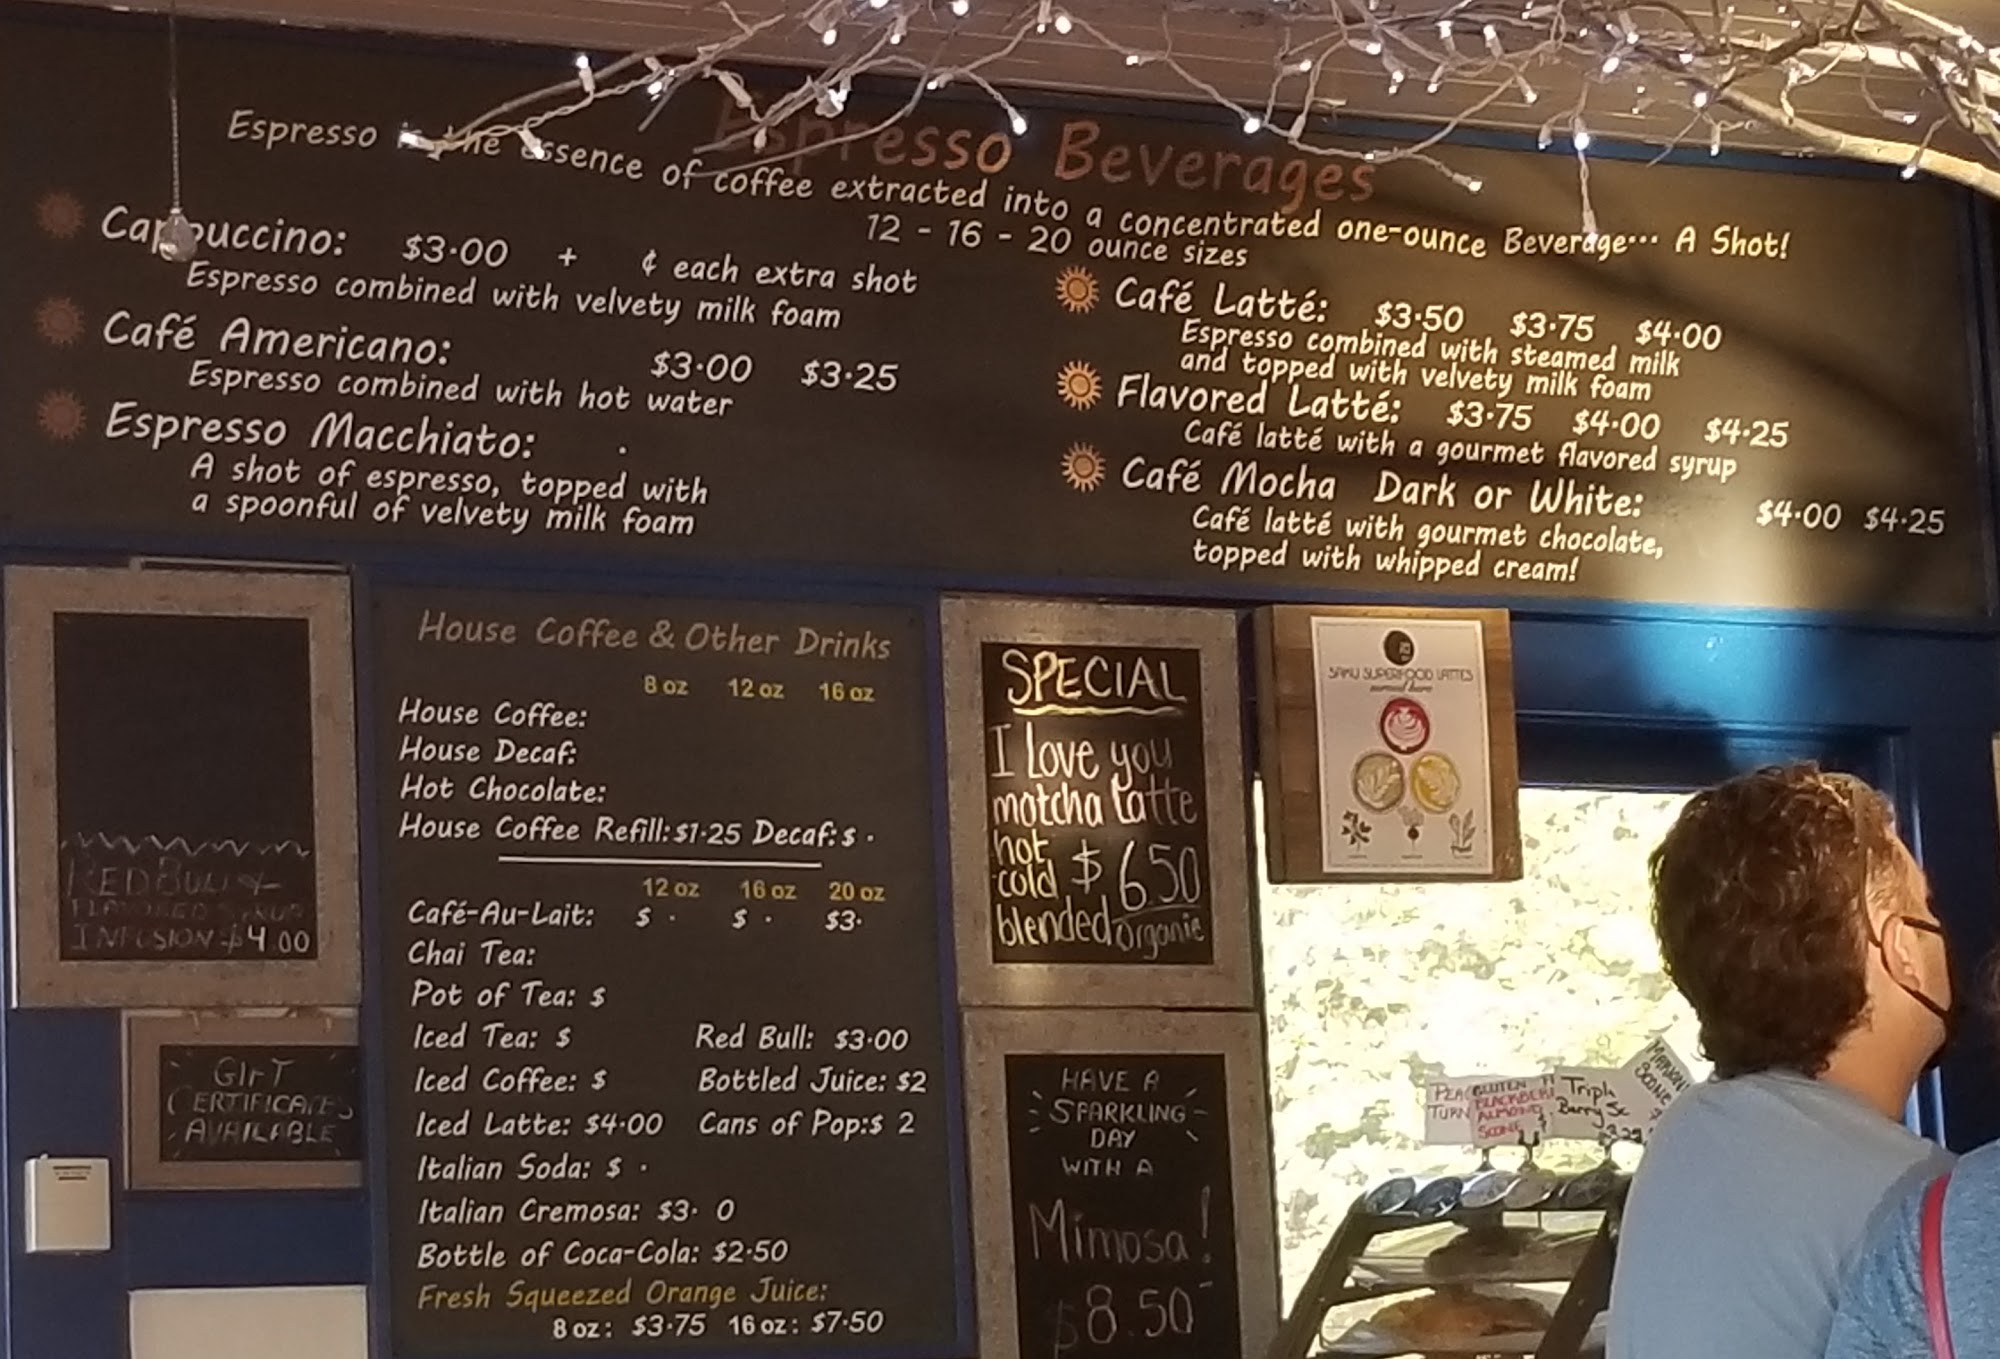 Espresso Beverages
Espresso the essence of coffee extracted into a concentrated one-ounce Beverage... A Shot!
12 - 16 - 20 ounce sizes
Cappuccino: $3.00 + ¢ each extra shot
Espresso combined with velvety milk foam
Café Americano: $3.00 $3.25
Espresso combined with hot water
Espresso Macchiato: .
A shot of espresso, topped with
a spoonful of velvety milk foam
Café Latté: $3.50 $3.75 $4.00
Espresso combined with steamed milk
and topped with velvety milk foam
Flavored Latté: $3.75 $4.00 $4.25
Café latté with a gourmet flavored syrup
Café Mocha Dark or White: $4.00 $4.25
Café latté with gourmet chocolate,
topped with whipped cream!
RED BULL
FLAVORED SYRUP
INFUSION $4.00
GIFT
CERTIFICATES
AVAILABLE
House Coffee & Other Drinks
8 oz 12 oz 16 oz
House Coffee:
House Decaf:
Hot Chocolate:
House Coffee Refill: $1.25 Decaf: $ .
12 oz 16 oz 20 oz
Café-Au-Lait: $ . $ . $3.
Chai Tea:
Pot of Tea: $
Iced Tea: $ Red Bull: $3.00
Iced Coffee: $ Bottled Juice: $2
Iced Latte: $4.00 Cans of Pop:$ 2
Italian Soda: $ .
Italian Cremosa: $3. 0
Bottle of Coca-Cola: $2.50
Fresh Squeezed Orange Juice:
8 oz: $3.75 16 oz: $7.50
SPECIAL
I Love you
matcha Latte
hot
cold
blended
$6.50
organic
HAVE A
SPARKLING
DAY
WITH A
Mimosa!
$8.50
SAKU SUPERFOOD LATTES
served here
GLUTEN
BLACKBER
ALMOND
SCONE
Triple
Berry Sc
3.29
SCONE